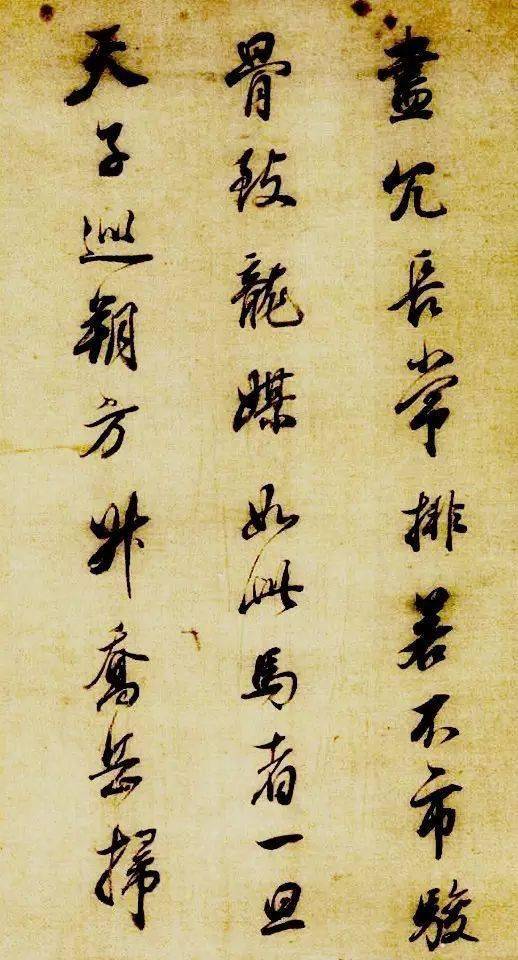 盡冗長常排若不市駿
骨致龍媒如此馬者一旦
天子巡朔方升喬岳掃